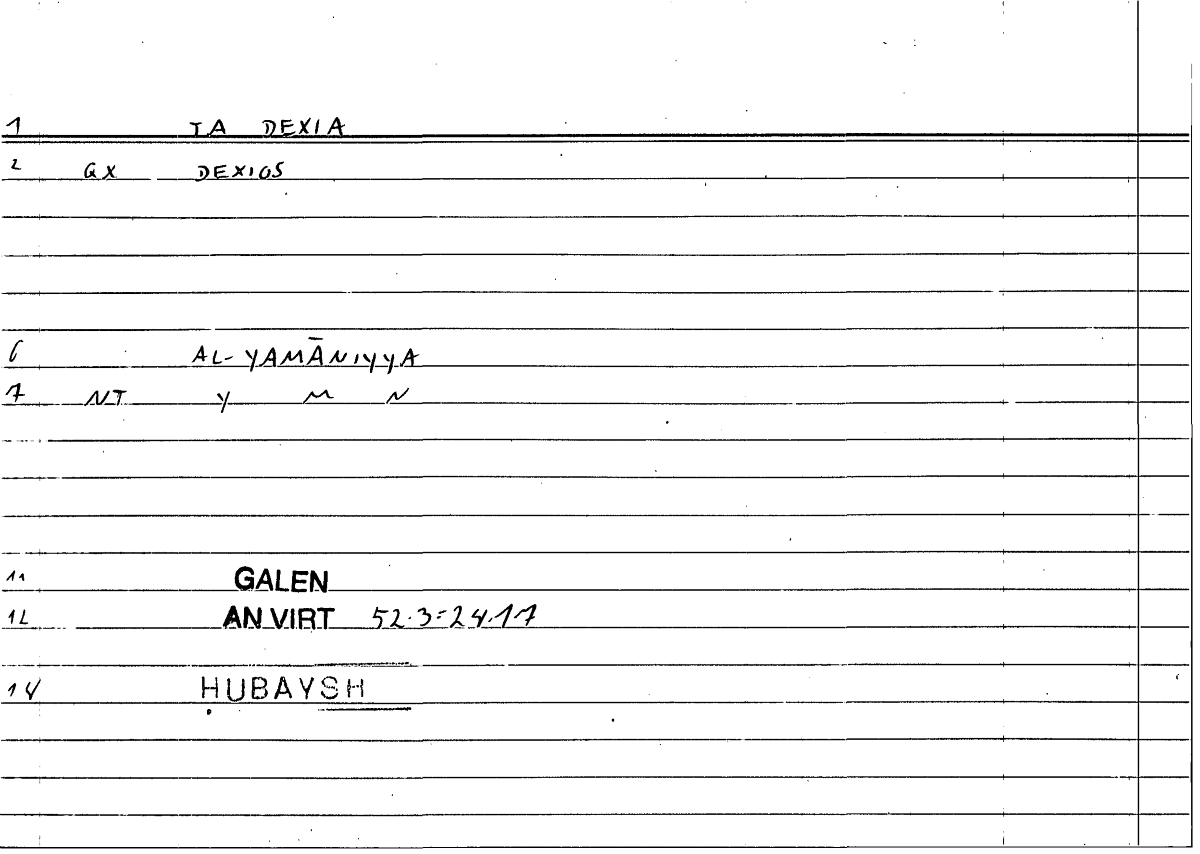 1 TA DEXIA
2 GX DEXIOS
6 AL-YAMĀNIYYA
7 NT Y M N
11 GALEN
12 AN VIRT 52.3=24.17
14 ḤUBAYSH